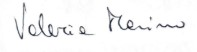 Valeria Merino